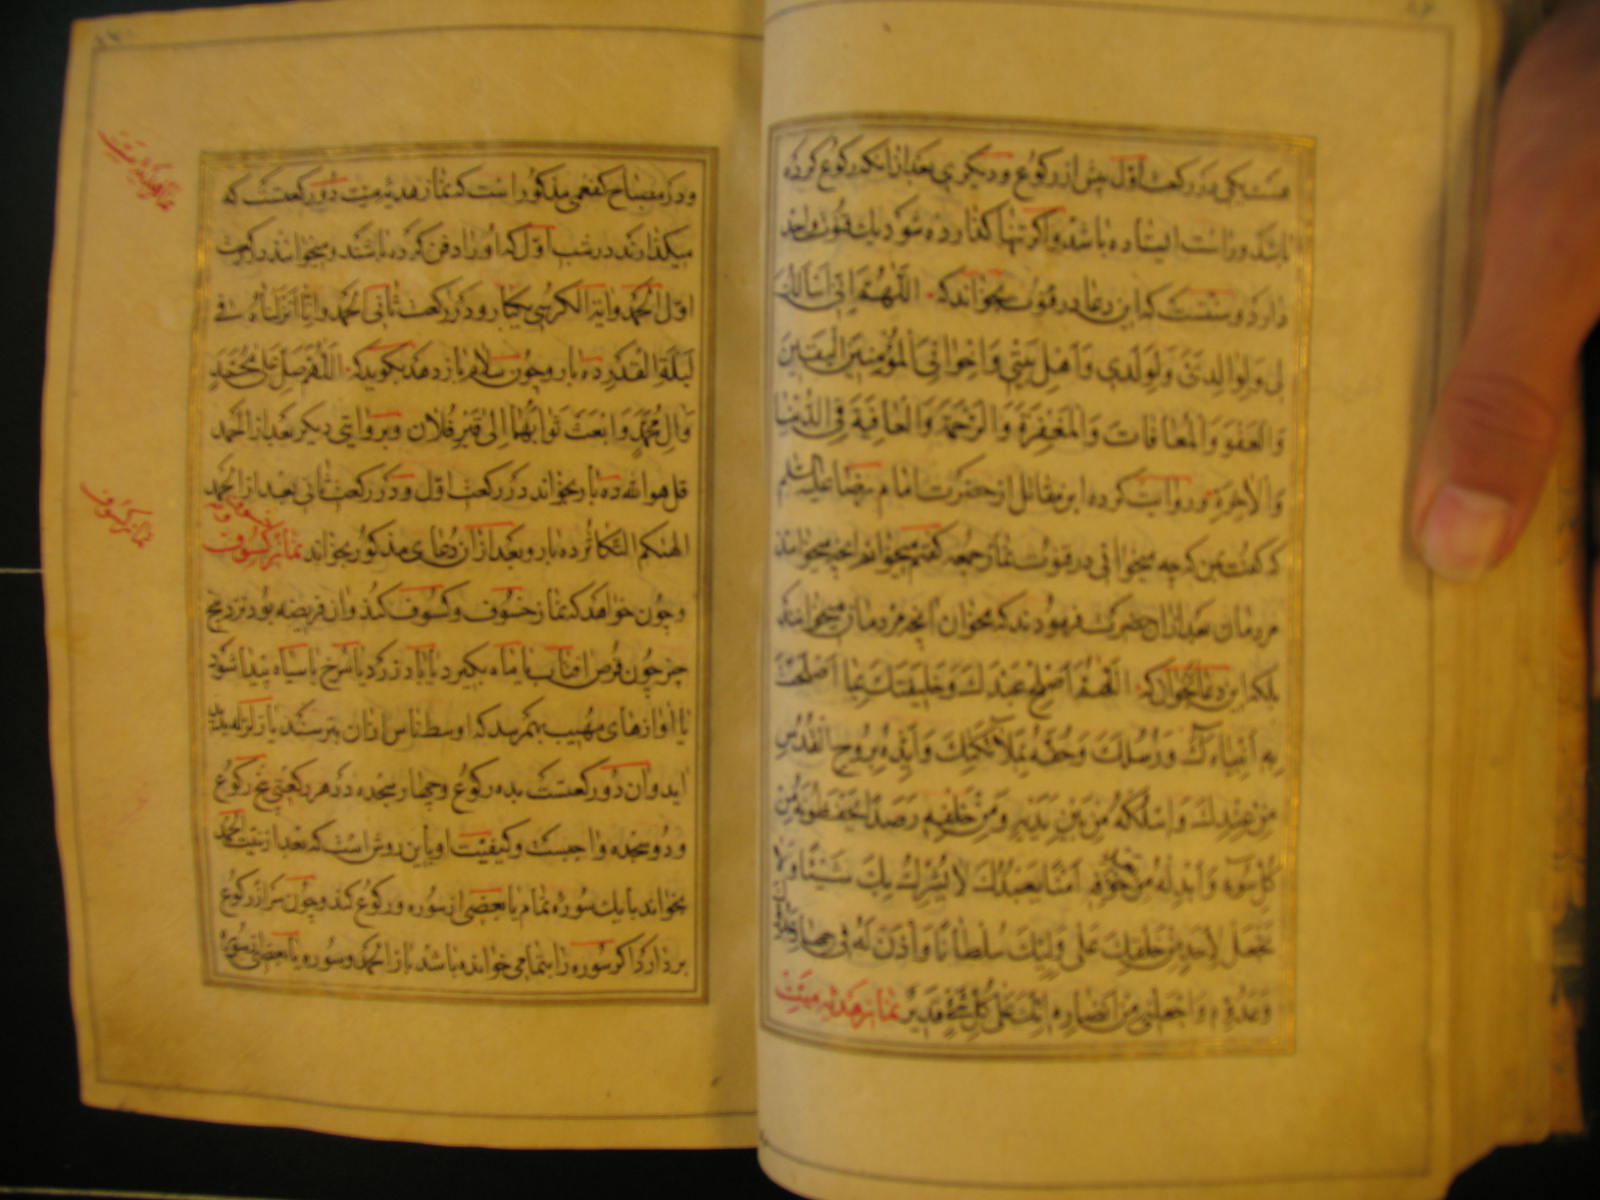 هست یکی در رکعت اوّل پیش از رکوع و دیگری بعد از آنکه رکوع کرده
باشد و راست ایستاده باشد و اگر تنها گذارده شود یک قنوت واحد
دارد و سنّتست که این دعا در قنوت بخواند که اَللّٰهُمَّ اِنّی اَسْاَلُكَ
لی وَلِوالِدَیَّ وَلِوَلَدی وَاَهْلِ بَیْتی وَاِخْوانی الْمُؤْمِنینَ الْیَقینَ
وَالْعَفْوَ وَالْمُعافاتَ وَالْمَغْفِرَةَ وَالرَّحْمَةَ وَالْعافِیَةَ فِی الدُّنْیا
وَالْاخِرَةِ و روایت کرده ابن مقاتل از حضرت امام رضا علیه السّلم
که گفت بمن که چه میخوانی در قنوت نماز جمعه گفتم میخوانم انچه میخوانند
مردمان بعد از ان حضرت فرمودند که مخوان انچه مردمان میخوانند
بلکه این دعا بخوان که اَللّٰهُمَّ اَصْلِحْ عَبْدَكَ وَخَلیفَتَكَ بِما اَصْلَحْتَ
بِهِ اَنْبِیاءَكَ وَرُسُلَكَ وَحُفَّهُ بِمَلآئِکَتِكَ وَاَیِّدْهُ بِرُوحِ الْقُدُسِ
مِنْ عِنْدِكَ وَاسْلُکْهُ مِنْ بَیْنِ یَدَیْهِ وَمِنْ خَلْفِهِ رَصَدًا یَحْفَظُونَهُ مِنْ
کُلِّ سُوءٍ وَاَبْدِلْهُ مِنْ خَوْفِهِ اَمْنًا یَعْبُدُكَ لا یُشْرِكُ بِكَ شَیْئًا وَلا
تَجْعَلْ لِاَحَدٍ مِنْ خَلْقِكَ عَلی وَلِیِّكَ سُلْطانًا وَأْذَنْ لَهُ فی جِهادِ عَدُوِّكَ
وَعَدُوِّهِ وَاجْعَلْنی مِنْ اَنْصارِهِ اِنَّكَ عَلی کُلِّ شَیْءٍ قَدیرٌ نماز هدیه میّت
نماز هدیه میت
و در مصباح کفعمی مذکور است که نماز هدیه میت دو رکعتست که
میگذارند در شب اوّل که او را دفن کرده باشند و بخوانند در رکعت
اوّل الحمد و ایة الکرسی یکبار و در رکعت ثانی الحمد و اِنّا اَنْزَلْناهُ فی
لَیْلَةِ الْقَدْرِ ده بار و چون سلام باز دهد بگوید که اَللّٰهُمَّ صَلِّ عَلی مُحَمَّدٍ
وَالِ مُحَمَّدٍ وَابْعَثْ ثَوابَهُما اِلی قَبْرِ فُلان و بروایتی دیگر بعد از الحمد
قل هو الله ده بار بخواند در رکعت اوّل و در رکعت ثانی بعد از الحمد
الهیکم التّکاثر ده بار و بعد از ان دعای مذکور بخواند نماز کسوف
نماز کسوف
و چون خواهد که نماز خسوف و کسوف کند و ان فریضه بود نزدیک
چون قرص افتاب یا ماه بگیرد یا باد زرد یا سرخ یا سیاه پیدا شود
یا آوازهای مهیب بهم رسد که اوسط ناس از ان بترسند یا زلزله پدید
اید و ان دو رکعتست بده رکوع و چهار سجده در هر رکعتی پنج رکوع
و دو سجده واجبست و کیفیّت او باین روش است که بعد از نیّت الحمد
بخواند با یك سوره تمام یا بعضی از سوره و رکوع کند و چون سر از رکوع
بردارد اگر سوره را بتمامی خوانده باشد باز الحمد و سوره یا بعضی از سوره